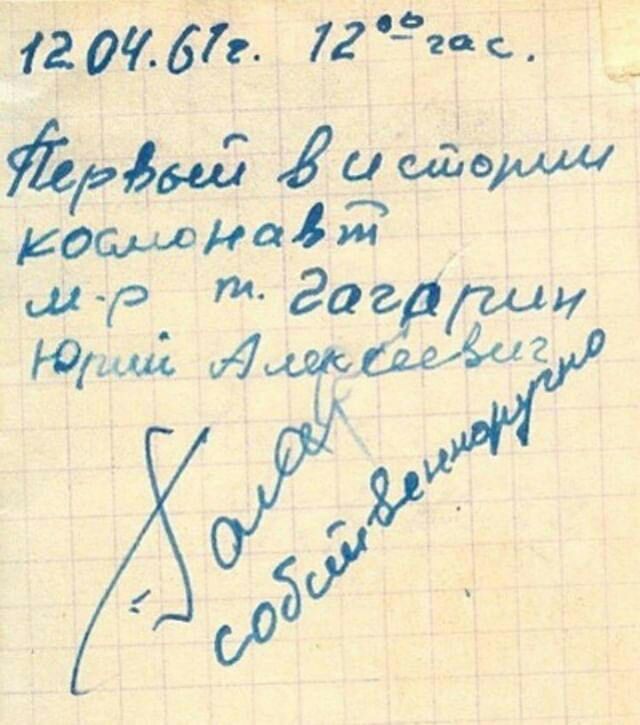 12.04.61г. 12⁰⁰ час.
Первый в истории
космонавт
м-р т. Гагарин
Юрий Алексеевич
собственноручно